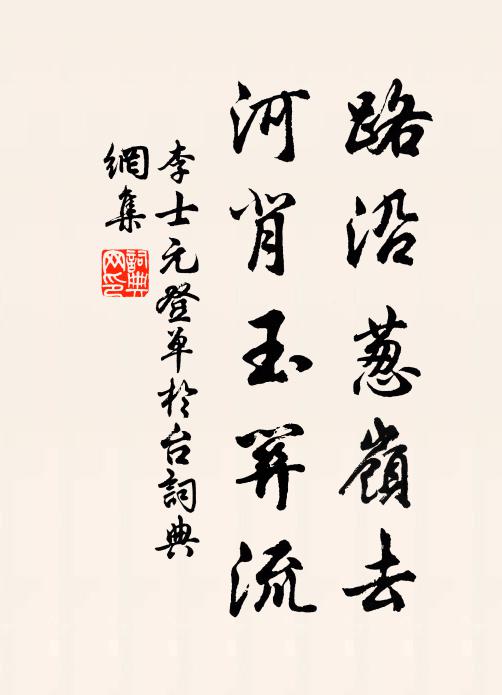 路沿葱嶺去
河背玉関流
李士元登单於台詞典
網集
詞典
网印